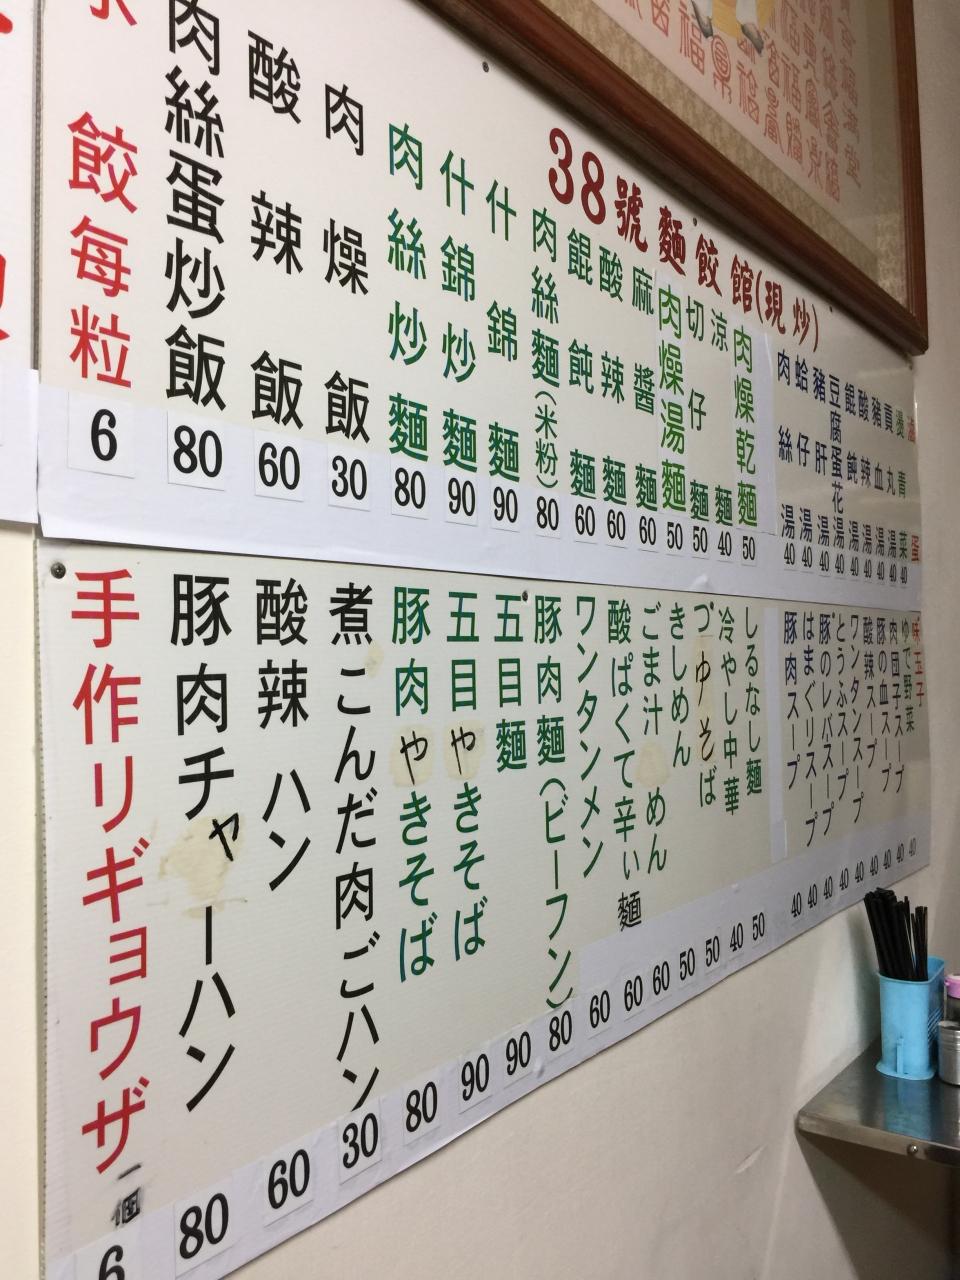 38號麵餃館(現炒)
滷蛋
燙青菜 40
貢丸湯 40
豬血湯 40
酸辣湯 40
餛飩湯 40
豆腐蛋花湯 40
豬肝湯 40
蛤仔湯 40
肉絲湯 40
肉燥乾麵 50
涼麵 40
切仔麵 50
肉燥湯麵 50
麻醬麵 60
酸辣麵 60
餛飩麵 60
肉絲麵(米粉) 80
什錦麵 90
什錦炒麵 90
肉絲炒麵 80
肉燥飯 30
酸辣飯 60
肉絲蛋炒飯 80
水餃每粒 6
味玉子
ゆで野菜 40
肉団子スープ 40
豚の血スープ 40
酸辣スープ 40
ワンタンスープ 40
とうふスープ 40
豚のレバスープ 40
はまぐリスープ 40
豚肉スープ 40
しるなし麵 50
冷やし中華 40
つゆそば 50
きしめん 50
ごま汁めん 60
酸ぱくて辛い麵 60
ワンタンメン 60
豚肉麵(ビーフン) 80
五目麵 90
五目やきそば 90
豚肉やきそば 80
煮こんだ肉ごハン 30
酸辣ハン 60
豚肉チャーハン 80
手作リギョウザ一個 6